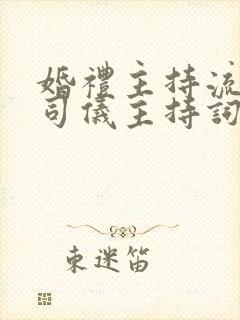 婚禮主持流
司儀主持詞
束迷笛